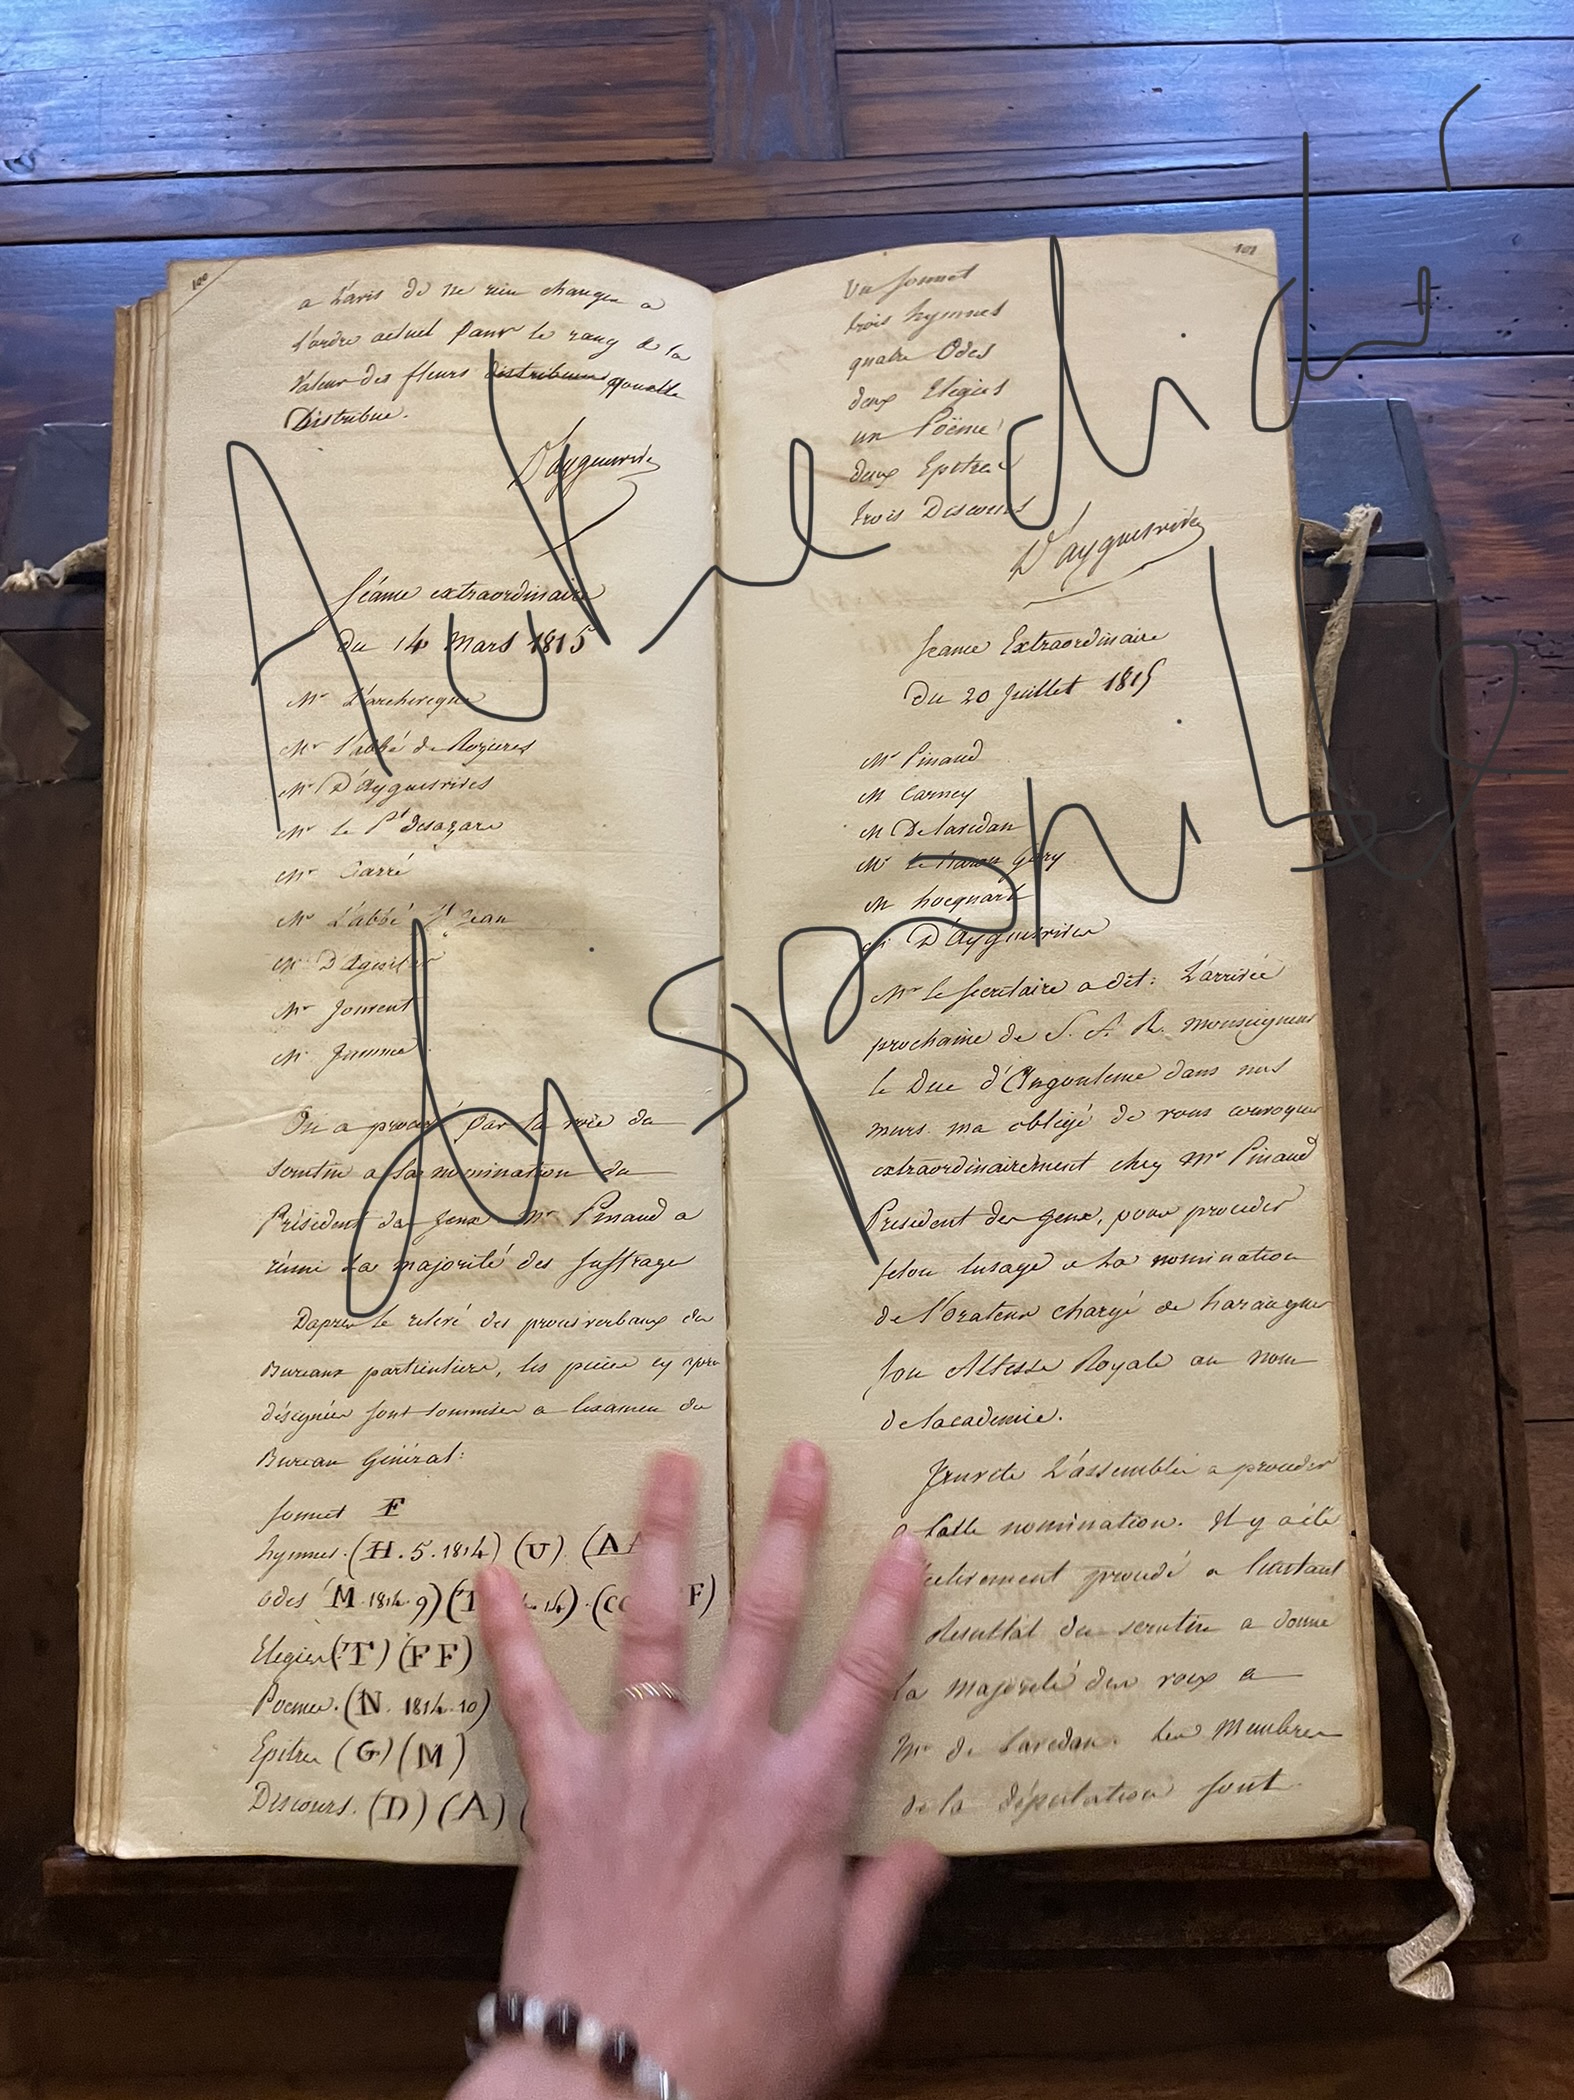 100
a L'avis de ne rien changer a
l'ordre actuel pour le rang de la
Valeur des fleurs distribuer qu'elle
Distribue.
D'ayguesvives
Séance extraordinaire
du 14 Mars 1815
Mr L'archeveque
Mr l'abbé de Rozieres
Mr D'Ayguesvives
Mr le Pt desazars
Mr Carré
Mr L'abbé St Jean
Mr D'Aguilar
Mr Jouvent
Mr Jamme
On a procedé par la voie du
Scrutin a la nomination du
Président des Jeux. Mr Pinaud a
réuni La majorité des suffrages
Dapres le relevé des procesverbaux des
Bureaux particuliers, les pieces cy apres
désignées sont soumises a lexamen du
Bureau Général:
Sonnet F
hymnes. (H. 5. 1814) (U). (A
odes (M. 1814. 9) ( 14). (CC F)
Elegies (T) (FF)
Poeme. (N. 1814. 10)
Epitres (G) (M)
Discours. (D) (A) (
101
Un Sonnet
trois hymnes
quatre Odes
deux Elegies
un Poëme
deux Epitres
trois Discours
D'ayguesvives
Seance Extraordinaire
du 20 Juillet 1815
Mr Pinaud
M Carney
M De lavedan
Mr le baron Gary
M hocquart
M D'Ayguesvives
Mr le Secretaire a dit: L'arrivée
prochaine de S. A. R. Monseigneur
le Duc d'Angouleme dans nos
murs ma obligé de vous convoquer
extraordinairement chez Mr Pinaud
President des Jeux, pour proceder
selon lusage a La nomination
de l'Orateur chargé de haranguer
Son Altesse Royale au nom
de lacademie.
Ensuite L'assemblée a proceder
a Cette nomination. Il y a été
procedé a linstant
Resultat du scrutin a donné
la majorité des voix a
Mr de Lavedan. Les Membres
de la députation sont